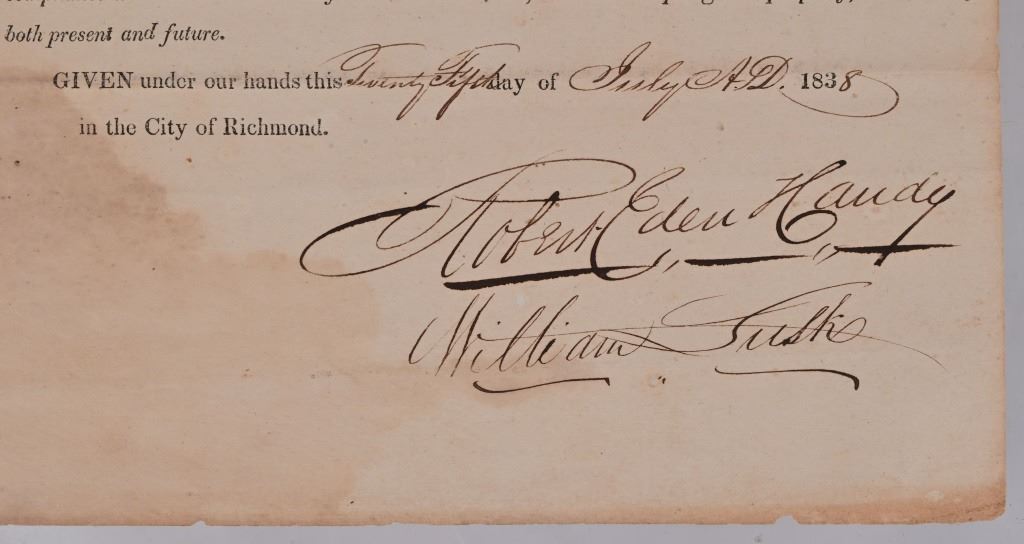 both present and future.
GIVEN under our hands this Twenty Fifth day of July A.D. 1838
in the City of Richmond.
Robert Eden Handy
William Lusk